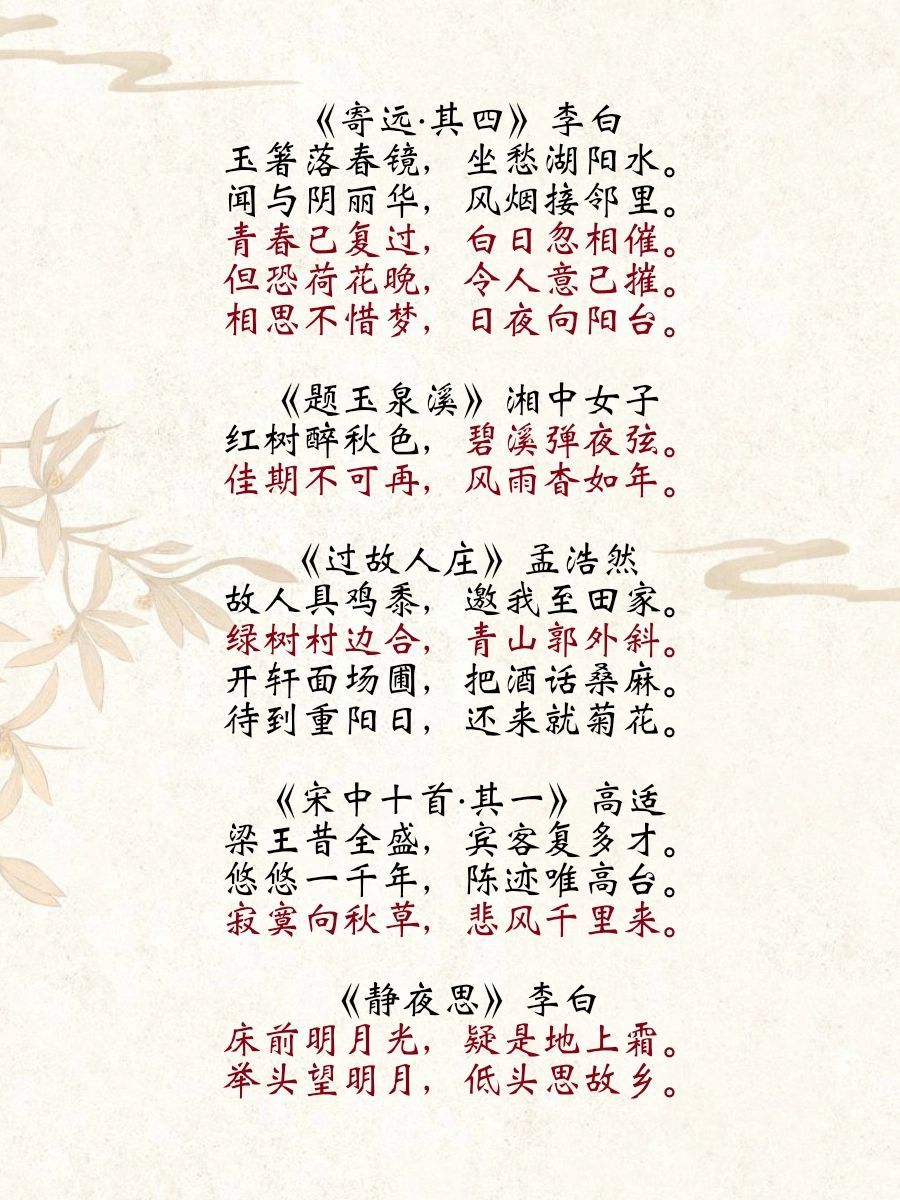 《寄远·其四》李白
玉箸落春镜，坐愁湖阳水。
闻与阴丽华，风烟接邻里。
青春已复过，白日忽相催。
但恐荷花晚，令人意已摧。
相思不惜梦，日夜向阳台。
《题玉泉溪》湘中女子
红树醉秋色，碧溪弹夜弦。
佳期不可再，风雨杳如年。
《过故人庄》孟浩然
故人具鸡黍，邀我至田家。
绿树村边合，青山郭外斜。
开轩面场圃，把酒话桑麻。
待到重阳日，还来就菊花。
《宋中十首·其一》高适
梁王昔全盛，宾客复多才。
悠悠一千年，陈迹唯高台。
寂寞向秋草，悲风千里来。
《静夜思》李白
床前明月光，疑是地上霜。
举头望明月，低头思故乡。